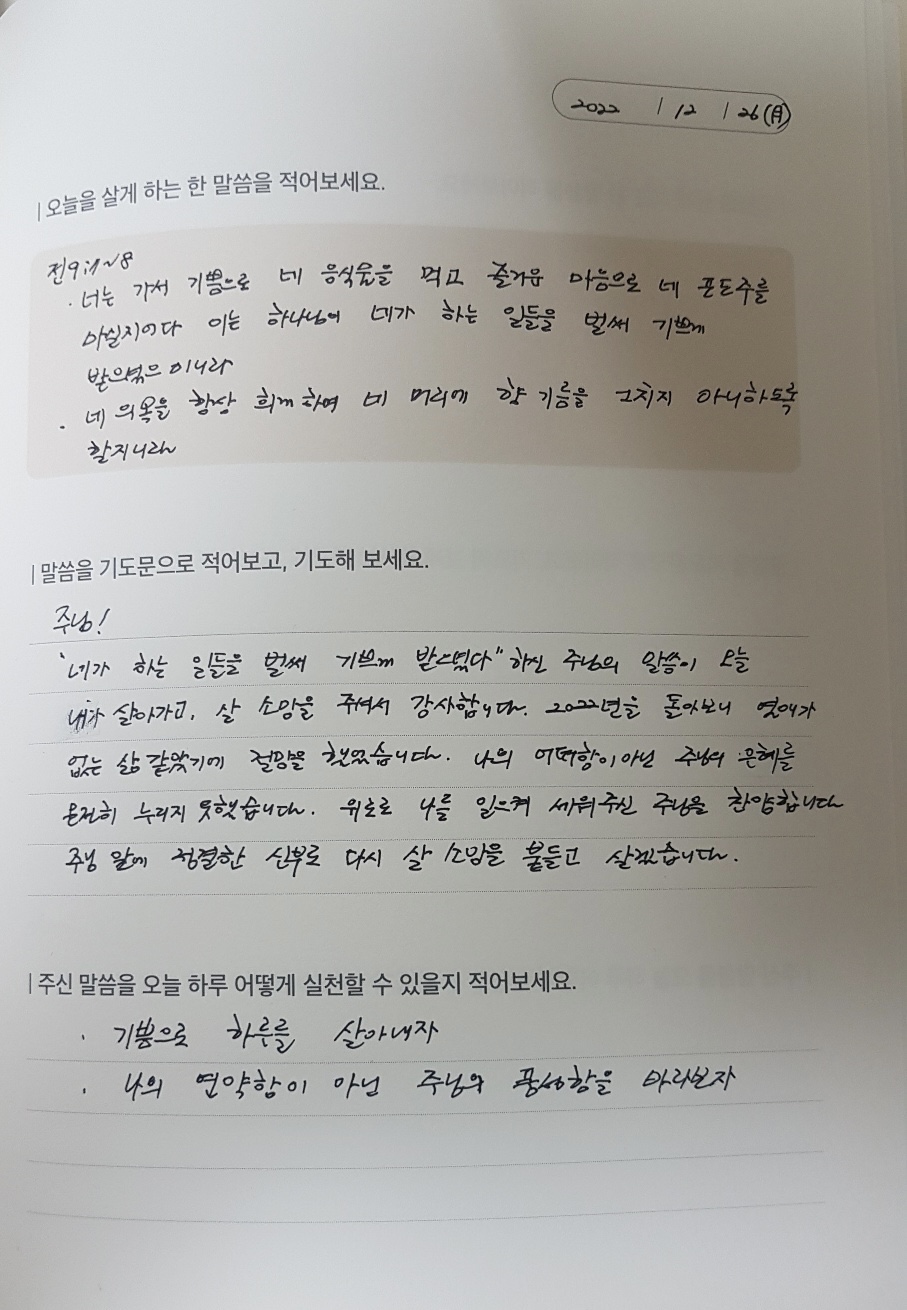 2022 / 12 / 26 (月)
| 오늘을 살게 하는 한 말씀을 적어보세요.
전9:7~8
· 너는 가서 기쁨으로 네 음식물을 먹고 즐거운 마음으로 네 포도주를
마실지어다 이는 하나님이 네가 하는 일들을 벌써 기쁘게
받으셨음이니라
· 네 의복을 항상 희게 하여 네 머리에 향 기름을 그치지 아니하도록
할지니라
| 말씀을 기도문으로 적어보고, 기도해 보세요.
주님!
"네가 하는 일들을 벌써 기쁘게 받으셨다" 하신 주님의 말씀이 오늘
내가 살아가고, 살 소망을 주셔서 감사합니다. 2022년을 돌아보니 열매가
없는 삶 같았기에 절망을 했었습니다. 나의 어떠함이 아닌 주님의 은혜를
온전히 누리지 못했습니다. 위로로 나를 일으켜 세워주신 주님을 찬양합니다
주님 앞에 정결한 신부로 다시 살 소망을 붙들고 살겠습니다.
| 주신 말씀을 오늘 하루 어떻게 실천할 수 있을지 적어보세요.
· 기쁨으로 하루를 살아내자
· 나의 연약함이 아닌 주님의 풍성함을 바라보자